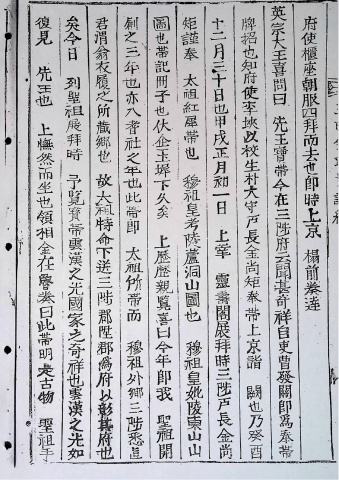 府使櫃座朝服四拜而去也卽時上京 榻前奏達
英宗大王喜問曰 先王寶帶今在三陟府云聞甚奇祥自吏曹發關卽爲奉帶
牌招也知府使李埉以校生朴大守戶長金尚矩奉帶上京詣 闕也乃癸酉
十二月三十日也甲戌正月初一日 上率 靈肅閣展拜時三陟戶長金尚
矩謹奉 太祖紅犀帶也 穆祖皇考陵蘆洞山圖也 穆祖皇妣陵東山山
圖也帶記冊子也伏金玉墀下久矣 上歷歷親覽喜曰今年卽我 聖祖開
創之三年也亦入耆社之年也此帶卽 太祖 帶而 穆祖外鄉三陟悉直
君渭翁衣履之所藏鄉也 故太祖特命下送三陟郡陞郡爲府以彰其府也
矣今日 列聖祖展拜時 予覽寶帶雲漢之光國家之奇祥也雲漢之光如
復見 先王也 上憮然而坐也領相金在魯奏曰此帶明是古物 聖祖手